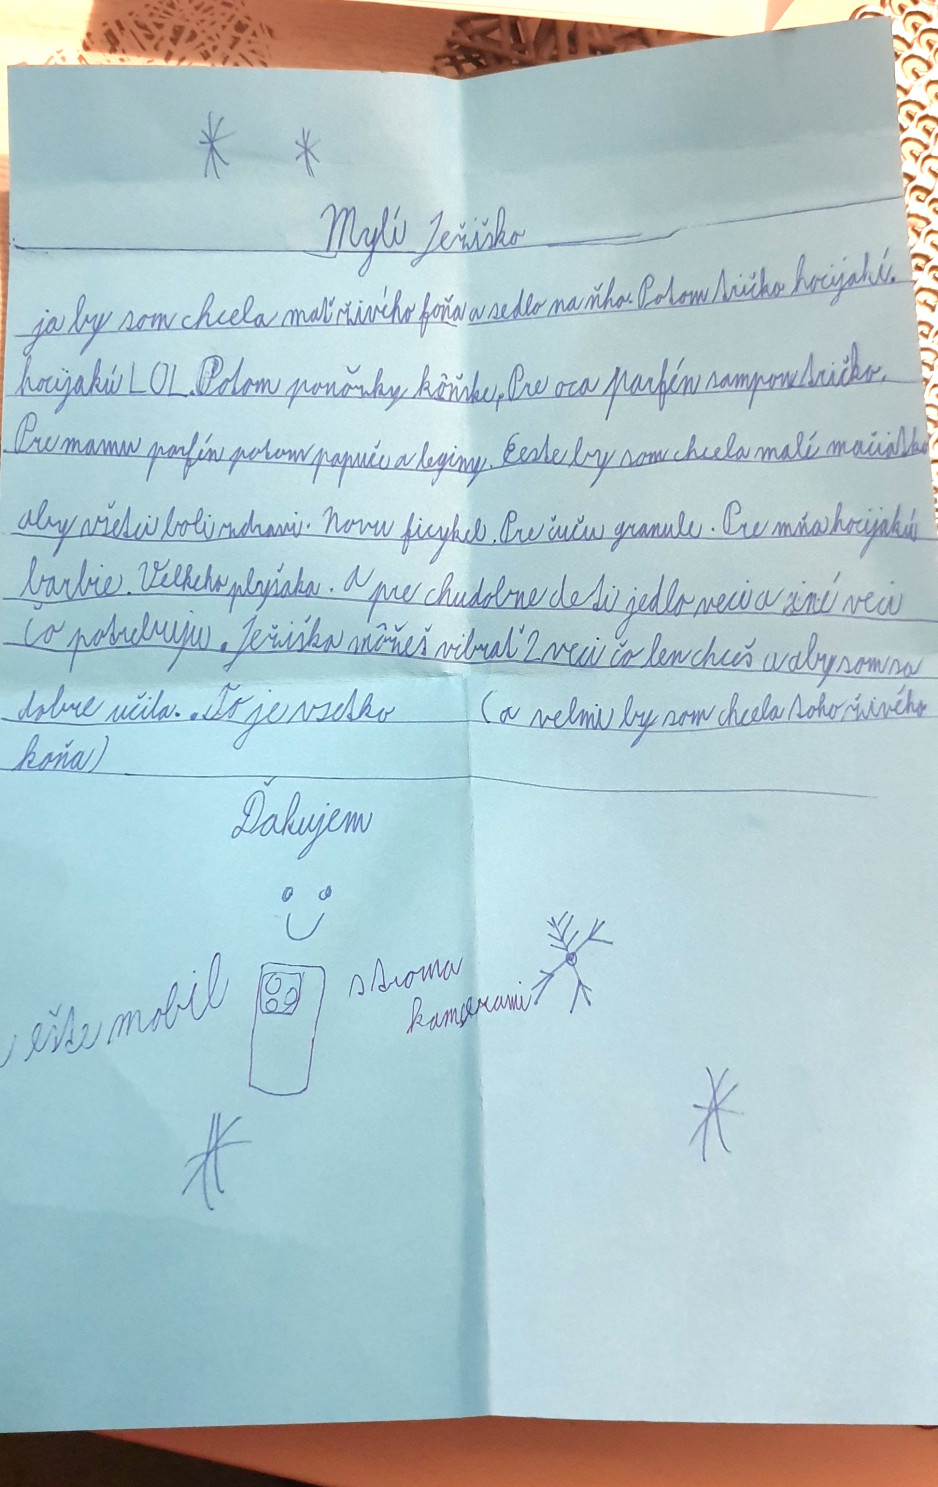 Mylí Ježiško
ja by som chcela mať živího foňa a sedlo na ňho. Potom tričko hocijakí.
hocijakú LOL. Potom ponôžky kôňske, Pre oca parfén sampon tričko.
Pre mamu parfén potom papuče a leginy. Eeste by som chcela malé mačiatko
aby všetci boli zdraví. Novu ficykel. Pre čuču granule. Pre mňa hocijakú
barbie. Velkeho plyšaka. A pre chudobne deti jedlo veci a iné veci
čo potrebuju. Ježiška môžeš vibrať 2 veci čo len chceš a aby som sa
dobre učila. To je vsetko (a velmi by som chcela toho živého
koňa)
Ďakujem
ešte mobil s troma
kamerami